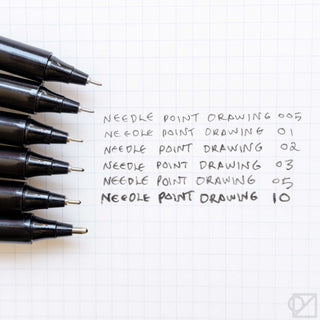 NEEDLE POINT DRAWING 005
NEEDLE POINT DRAWING 01
NEEDLE POINT DRAWING 02
NEEDLE POINT DRAWING 03
NEEDLE POINT DRAWING 05
NEEDLE POINT DRAWING 10